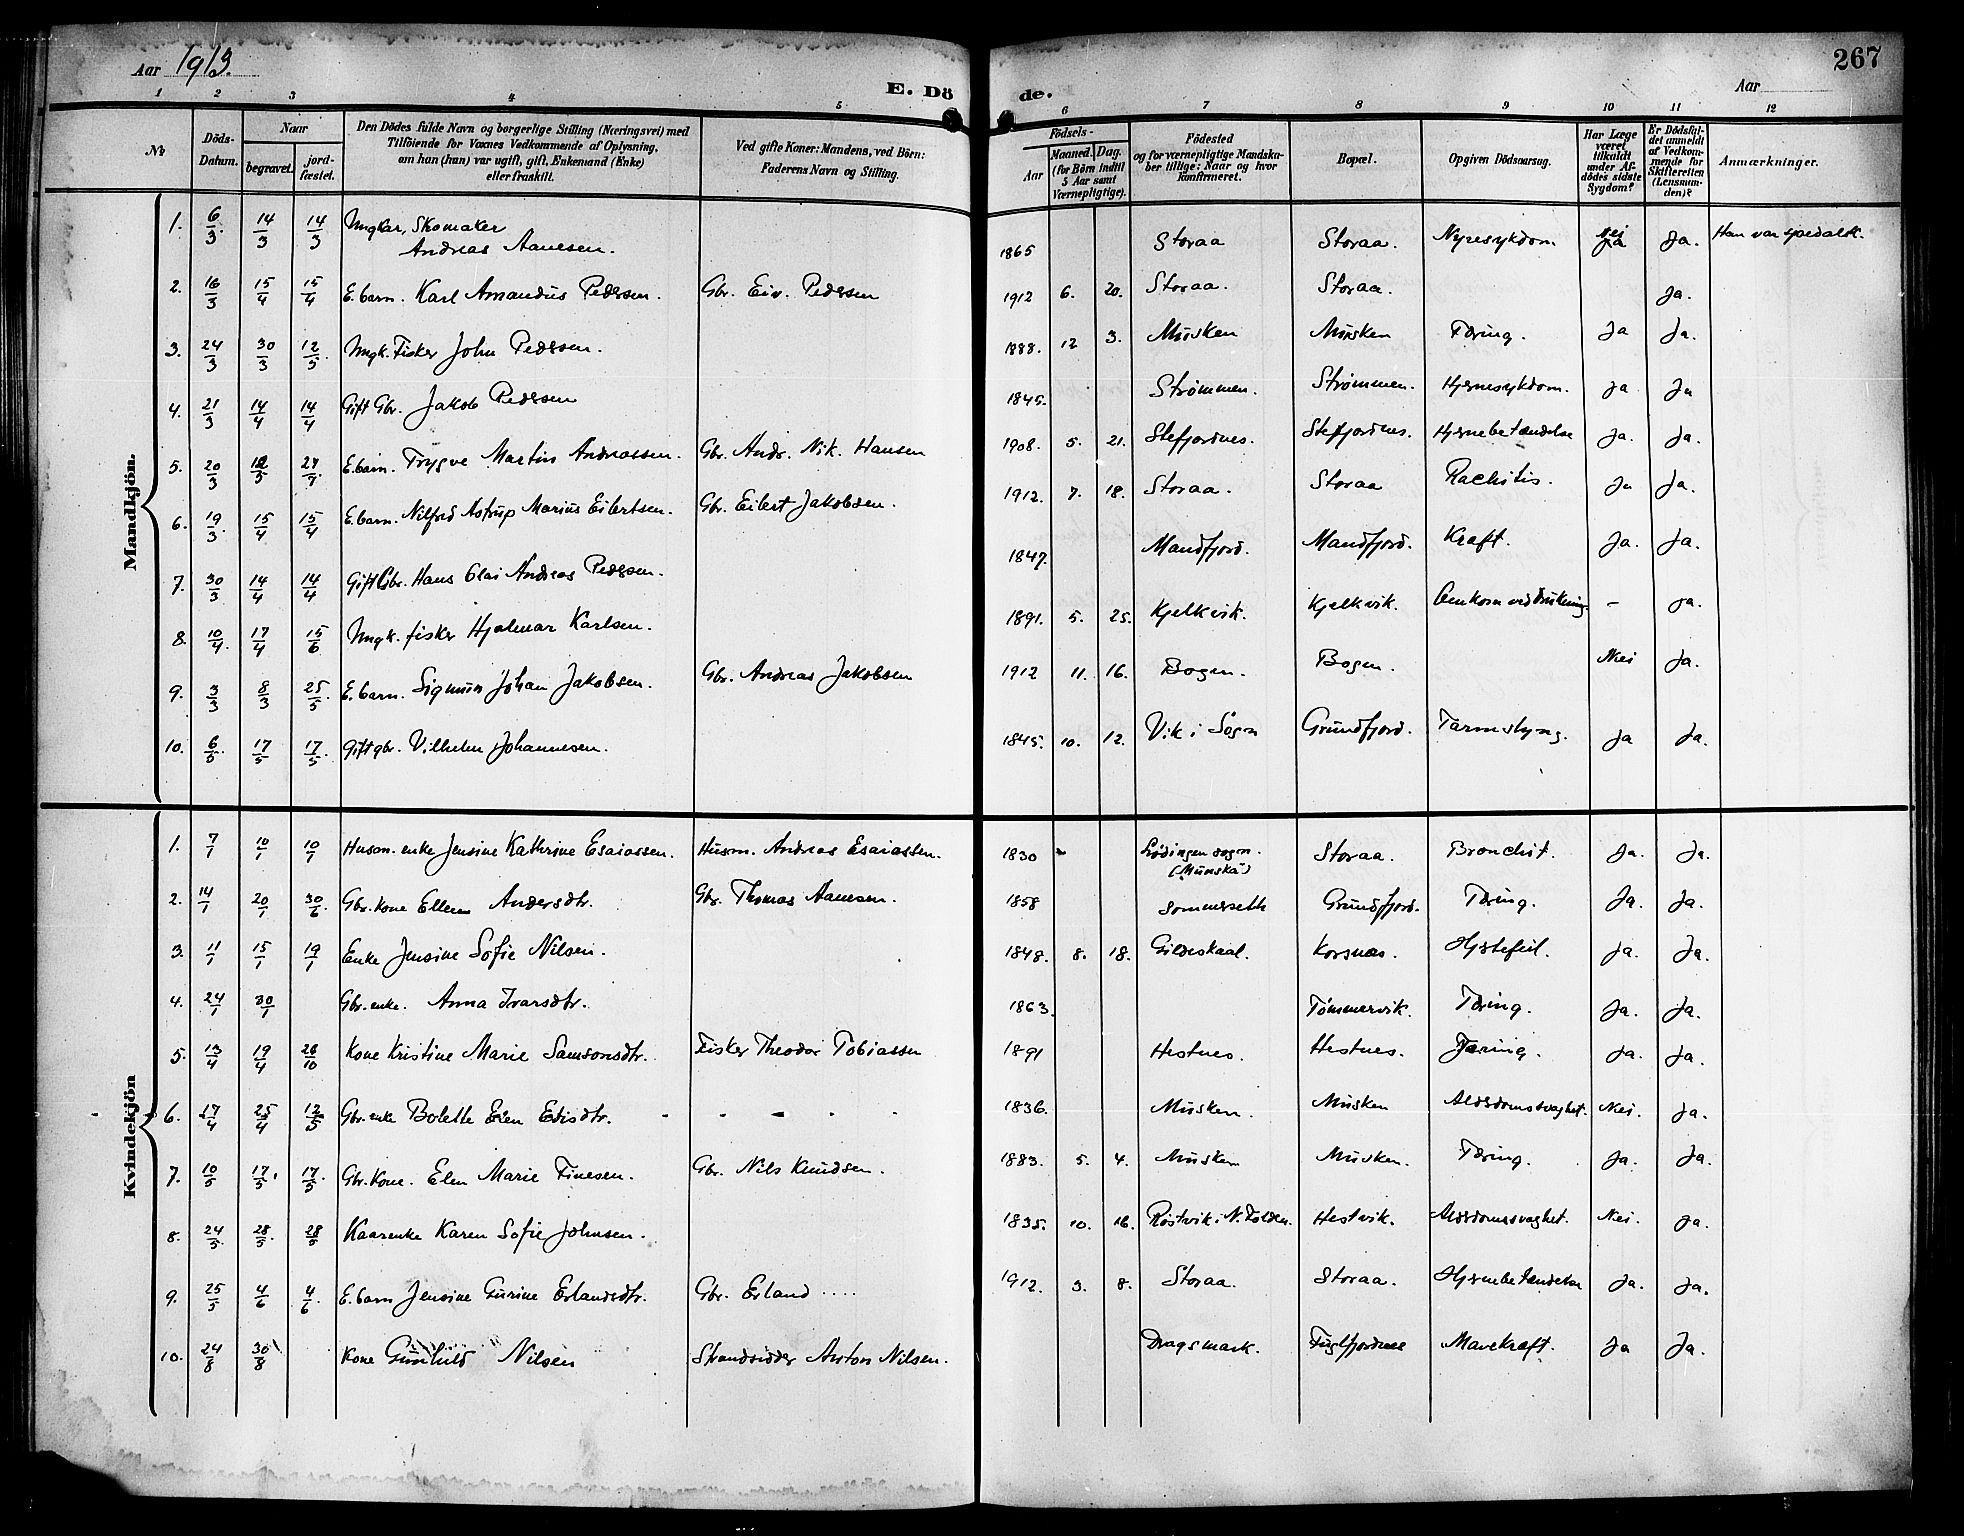 Aar 1913.
E. Dö
de.
Aar
267
1 2 3 4 5 6 7 8 9 10 11 12
No
Döds-Datum.
Naar
begravet.
jord-fæstet.
Den Dödes fulde Navn og borgerlige Stilling (Næringsvei) med Tilföiende for Voxnes Vedkommende af Oplysning, om han (hun) var ugift, gift, Enkemand (Enke) eller fraskilt.
Ved gifte Koner: Mandens, ved Börn: Faderens Navn og Stilling.
Födsels-
Aar
Maaned. Dag.
(for Börn indtil 5 Aar samt Værnepligtige).
Födested og for værnepligtige Mandska-ber tillige: Naar og hvor konfirmeret.
Bopæl.
Opgiven Dödsaarsag.
Har Læge været tilkaldt under Af-dödes sidste Sygdom?
Er Dödsfal-det anmeldt af Vedkom-mende for Skifteretten (Lensman-den)?
Anmærkninger.
Mandkjön.
1. 6/3 14/3 14/3 Ungkar, Skomaker Andreas Aanesen. 1865 Storaa Storaa. Nyresykdom. Nei Ja. Han var spedalsk.
2. 16/3 15/4 15/4 E. barn. Karl Amandus Pedersen. Gbr. Eiv. Pedersen 1912 6. 20. Storaa. Storaa. Ja.
3. 24/3 30/3 12/5 Ungk. Fisker John Pedersen. 1888. 12 3. Musken Musken Tæring. Ja Ja.
4. 21/3 14/4 14/4 Gift Gbr. Jakob Pedersen 1845. Strømmen. Strømmen. Hjernesykdom. Ja Ja
5. 20/3 27/7 E. barn. Trygve Martin Andreassen. Gbr. Andr. Nik. Hansen 1908. 5. 21. Stefjordnes. Stefjordnes. Hjernebetændelse Ja. Ja.
6. 19/3 15/4 15/4 E. barn. Nilfred Astrup Marius Eilertsen. Gbr. Eilert Jakobsen. 1912. 7. 18. Storaa. Storaa Rachitis. Ja Ja.
7. 30/3 14/4 14/4 Gift Gbr. Hans Olai Andreas Pedersen. 1847. Mandfjord. Mandfjord. Kræft. Ja. Ja.
8. 10/4 17/4 15/6 Ungk. fisker Hjalmar Karlsen. 1891. 5. 25. Kjelkvik. Kjelkvik. Omkom ved drukning. - Ja.
9. 3/3 8/3 25/5 E. barn. Sigmund Johan Jakobsen. Gbr. Andreas Jakobsen 1912 11. 16. Bogen. Bogen. Nei Ja.
10. 6/5 17/5 17/5 Gift gbr. Vilhelm Johannesen. 1845. 10. 12. Vik i Sogn Grundfjord. Tarmslyng. Ja Ja.
Kvindekjön
1. 7/1 10/1 10/1 Husm. enke Jensine Kathrine Esaiassen. Husm. Andreas Esaiassen. 1830 Lødingen sogn. Storaa. Bronchit. Ja. Ja.
2. 14/1 20/1 30/6 Gbr. kone Ellen Andersdtr. Gbr. Thomas Aanesen. 1858 Sommersette Grundfjord. Tæring. Ja. Ja.
3. 11/1 15/1 19/1 Enke Jensine Sofie Nilsen. 1848. 8. 18. Gildeskaal. Korsnæs. Hjertefeil. Ja. Ja.
4. 24/1 30/1 Gbr. enke. Anna Ivarsdtr. 1863. Tømmervik. Tæring. Ja. Ja.
5. 13/4 19/4 26/10 Kone Kristine Marie Samsonsdtr. Fisker Theodor Tobiassen 1891 Hestnes. Hestnes. Tæring. Ja. Ja.
6. 17/4 25/4 12/5 Gbr. enke Bolette Elen Edisdtr. 1836. Musken. Musken Alderdomssvaghet. Nei. Ja.
7. 10/5 17/5 17/5 Gbr. kone. Elen Marie Finesen. Gbr. Nils Knudsen. 1883. 5. 4. Musken Musken. Tæring. Ja. Ja.
8. 24/5 28/5 28/5 Kaarenke Karen Sofie Johnsen. 1835. 10. 16. Røstvik i N. Folden. Hestvik. Alderdomssvaghet. Nei. Ja.
9. 25/5 4/6 4/6 E. barn Jensine Gurine Erlandsdtr. Gbr. Erland .... 1912. 3. 8. Storaa. Storaa. Hjernebetændelse Ja. Ja.
10. 24/8 30/8 Kone Gunhild Nilsen Strandsidder Anton Nilsen. Dragsmark. Fuglfjordnes Mavekræft. Ja Ja.